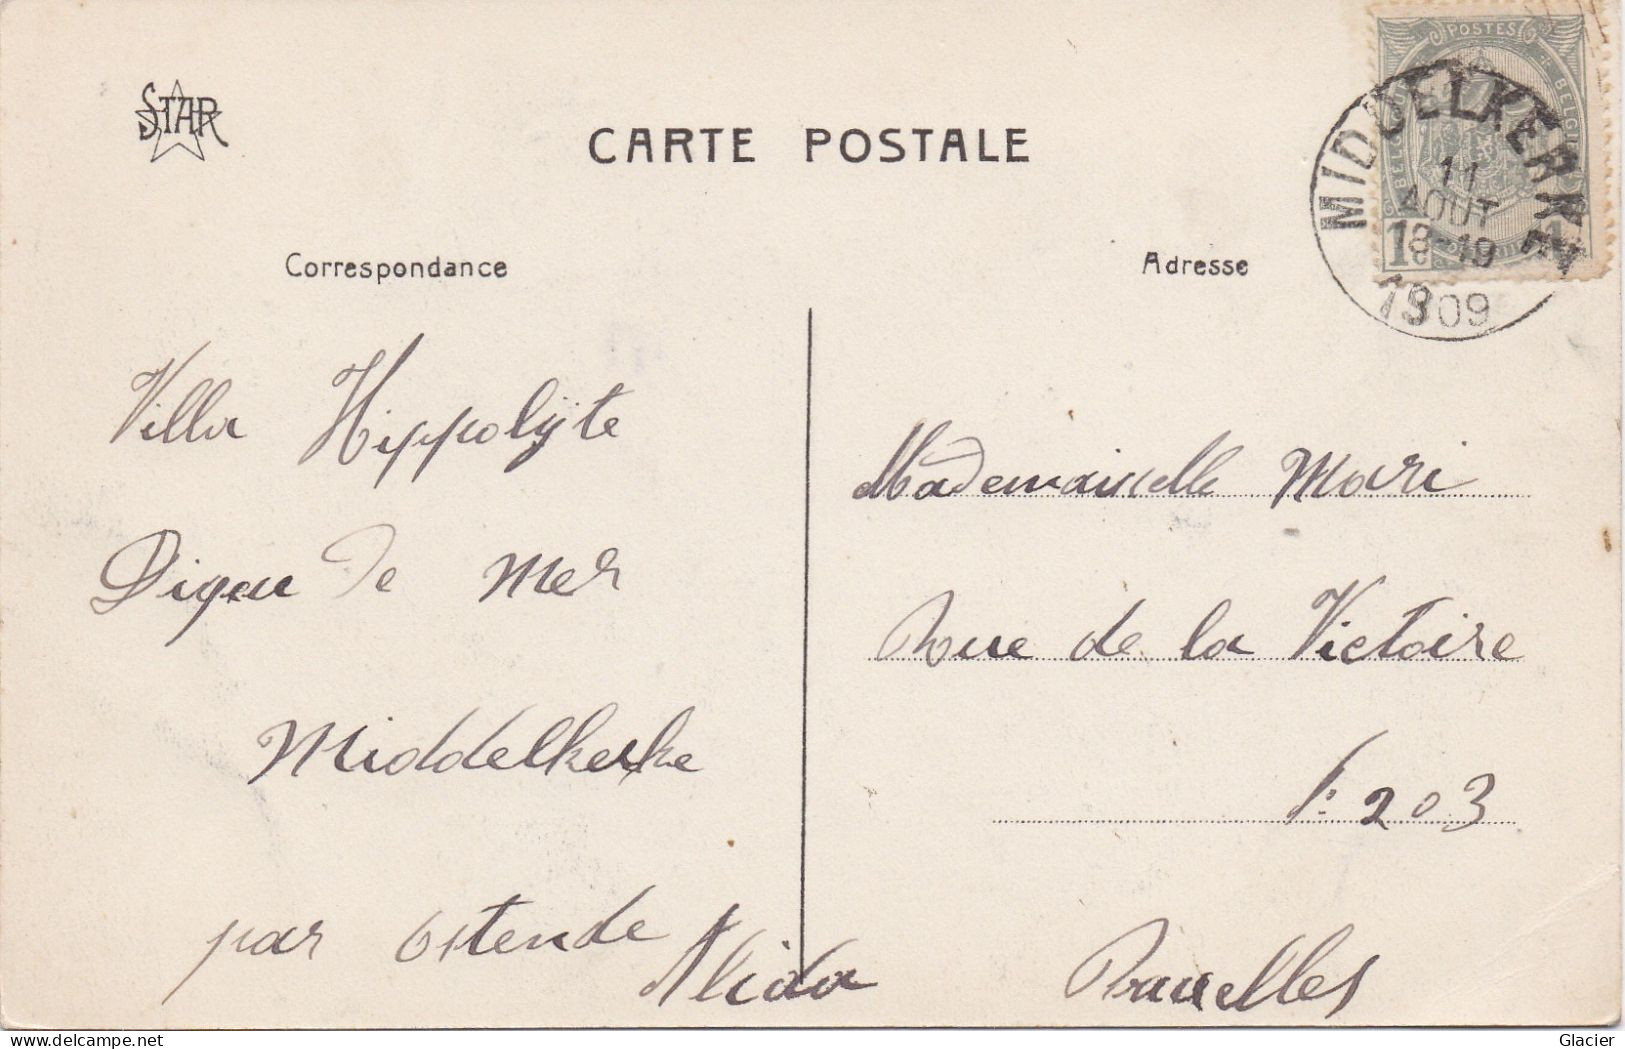 STAR
CARTE POSTALE
Correspondance
Adresse
POSTES
MIDDELKERKE
11
AOUT
18-19
1909
1c
Villa Hippolÿte
Digue de Mer
Middelkerke
par Ostende
Alida
Mademaiselle Mari
Rue de la Victoire
203
Bruxelles
delcampe.net
Glacier